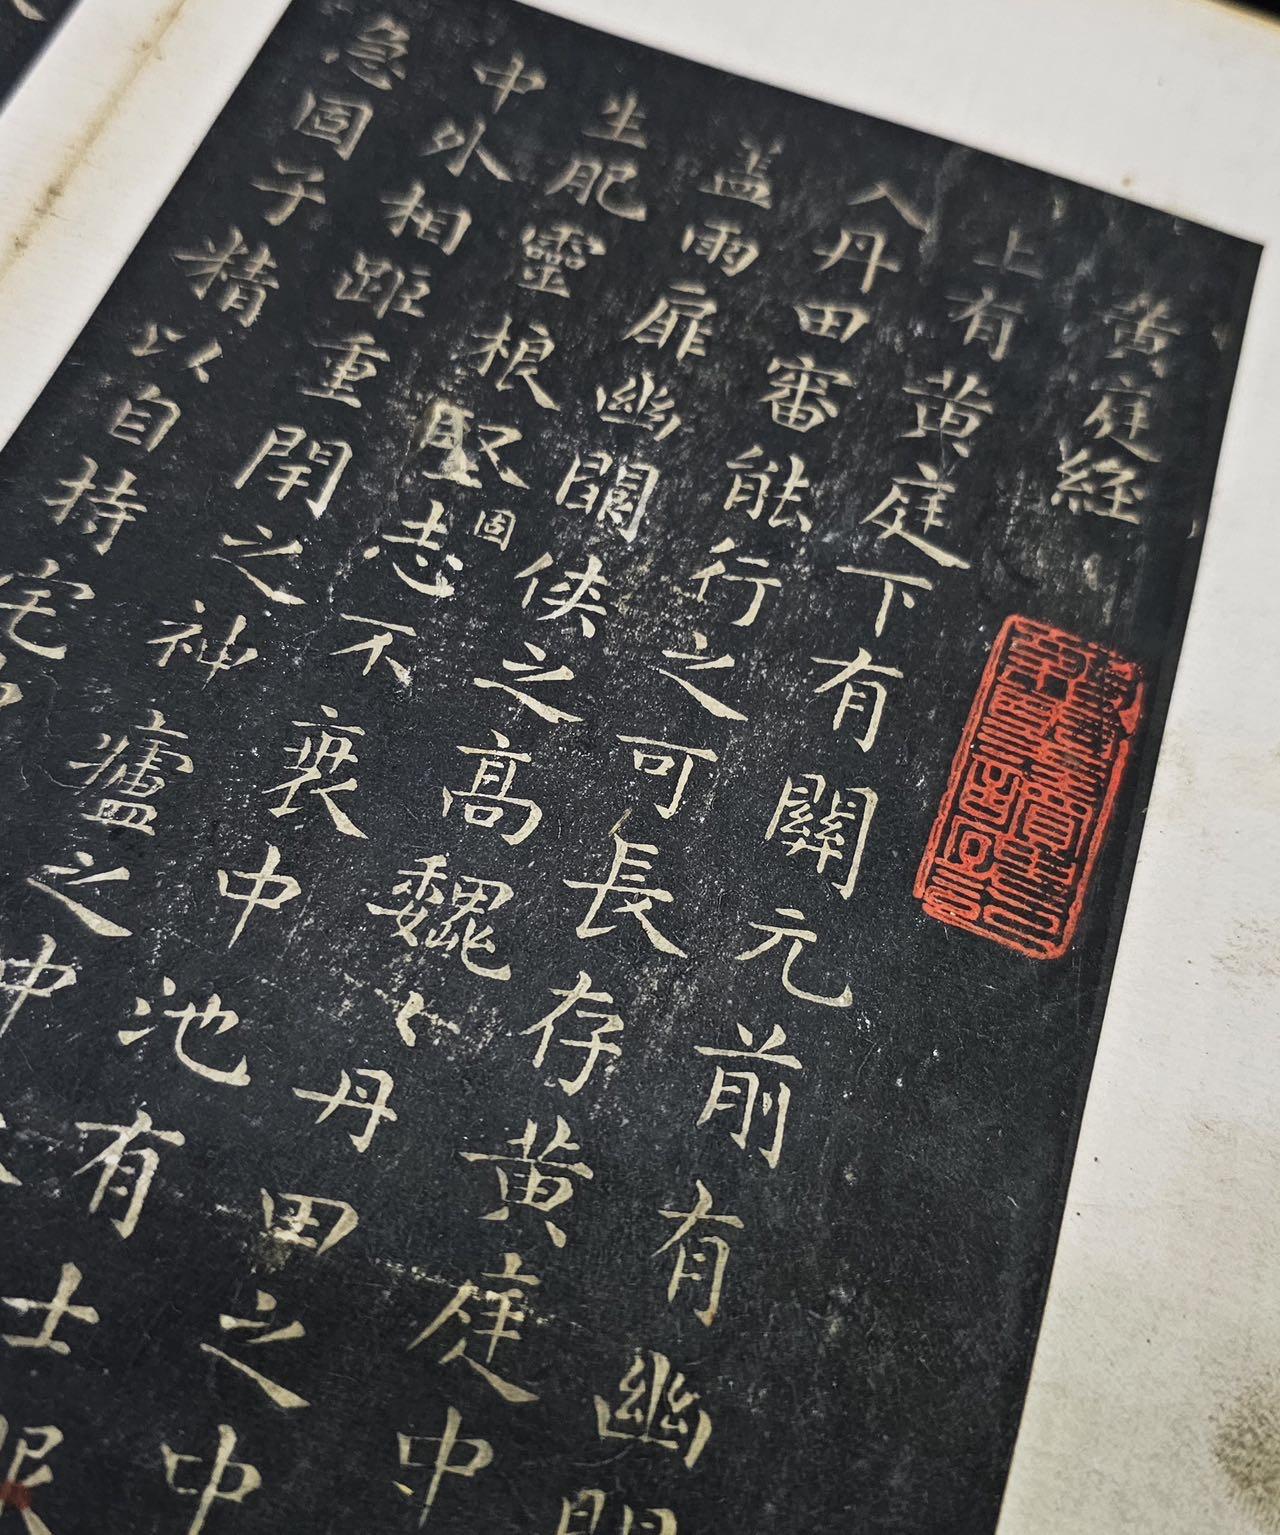 黃庭經
上有黃庭下有關元前有幽
入丹田審能行之可長存黃庭中
盖兩扉幽闕侠之髙魏〻丹田之中
生肥靈根堅固志不衰中池有士服
中外相距重閇之神廬之中
急固子精以自持宅